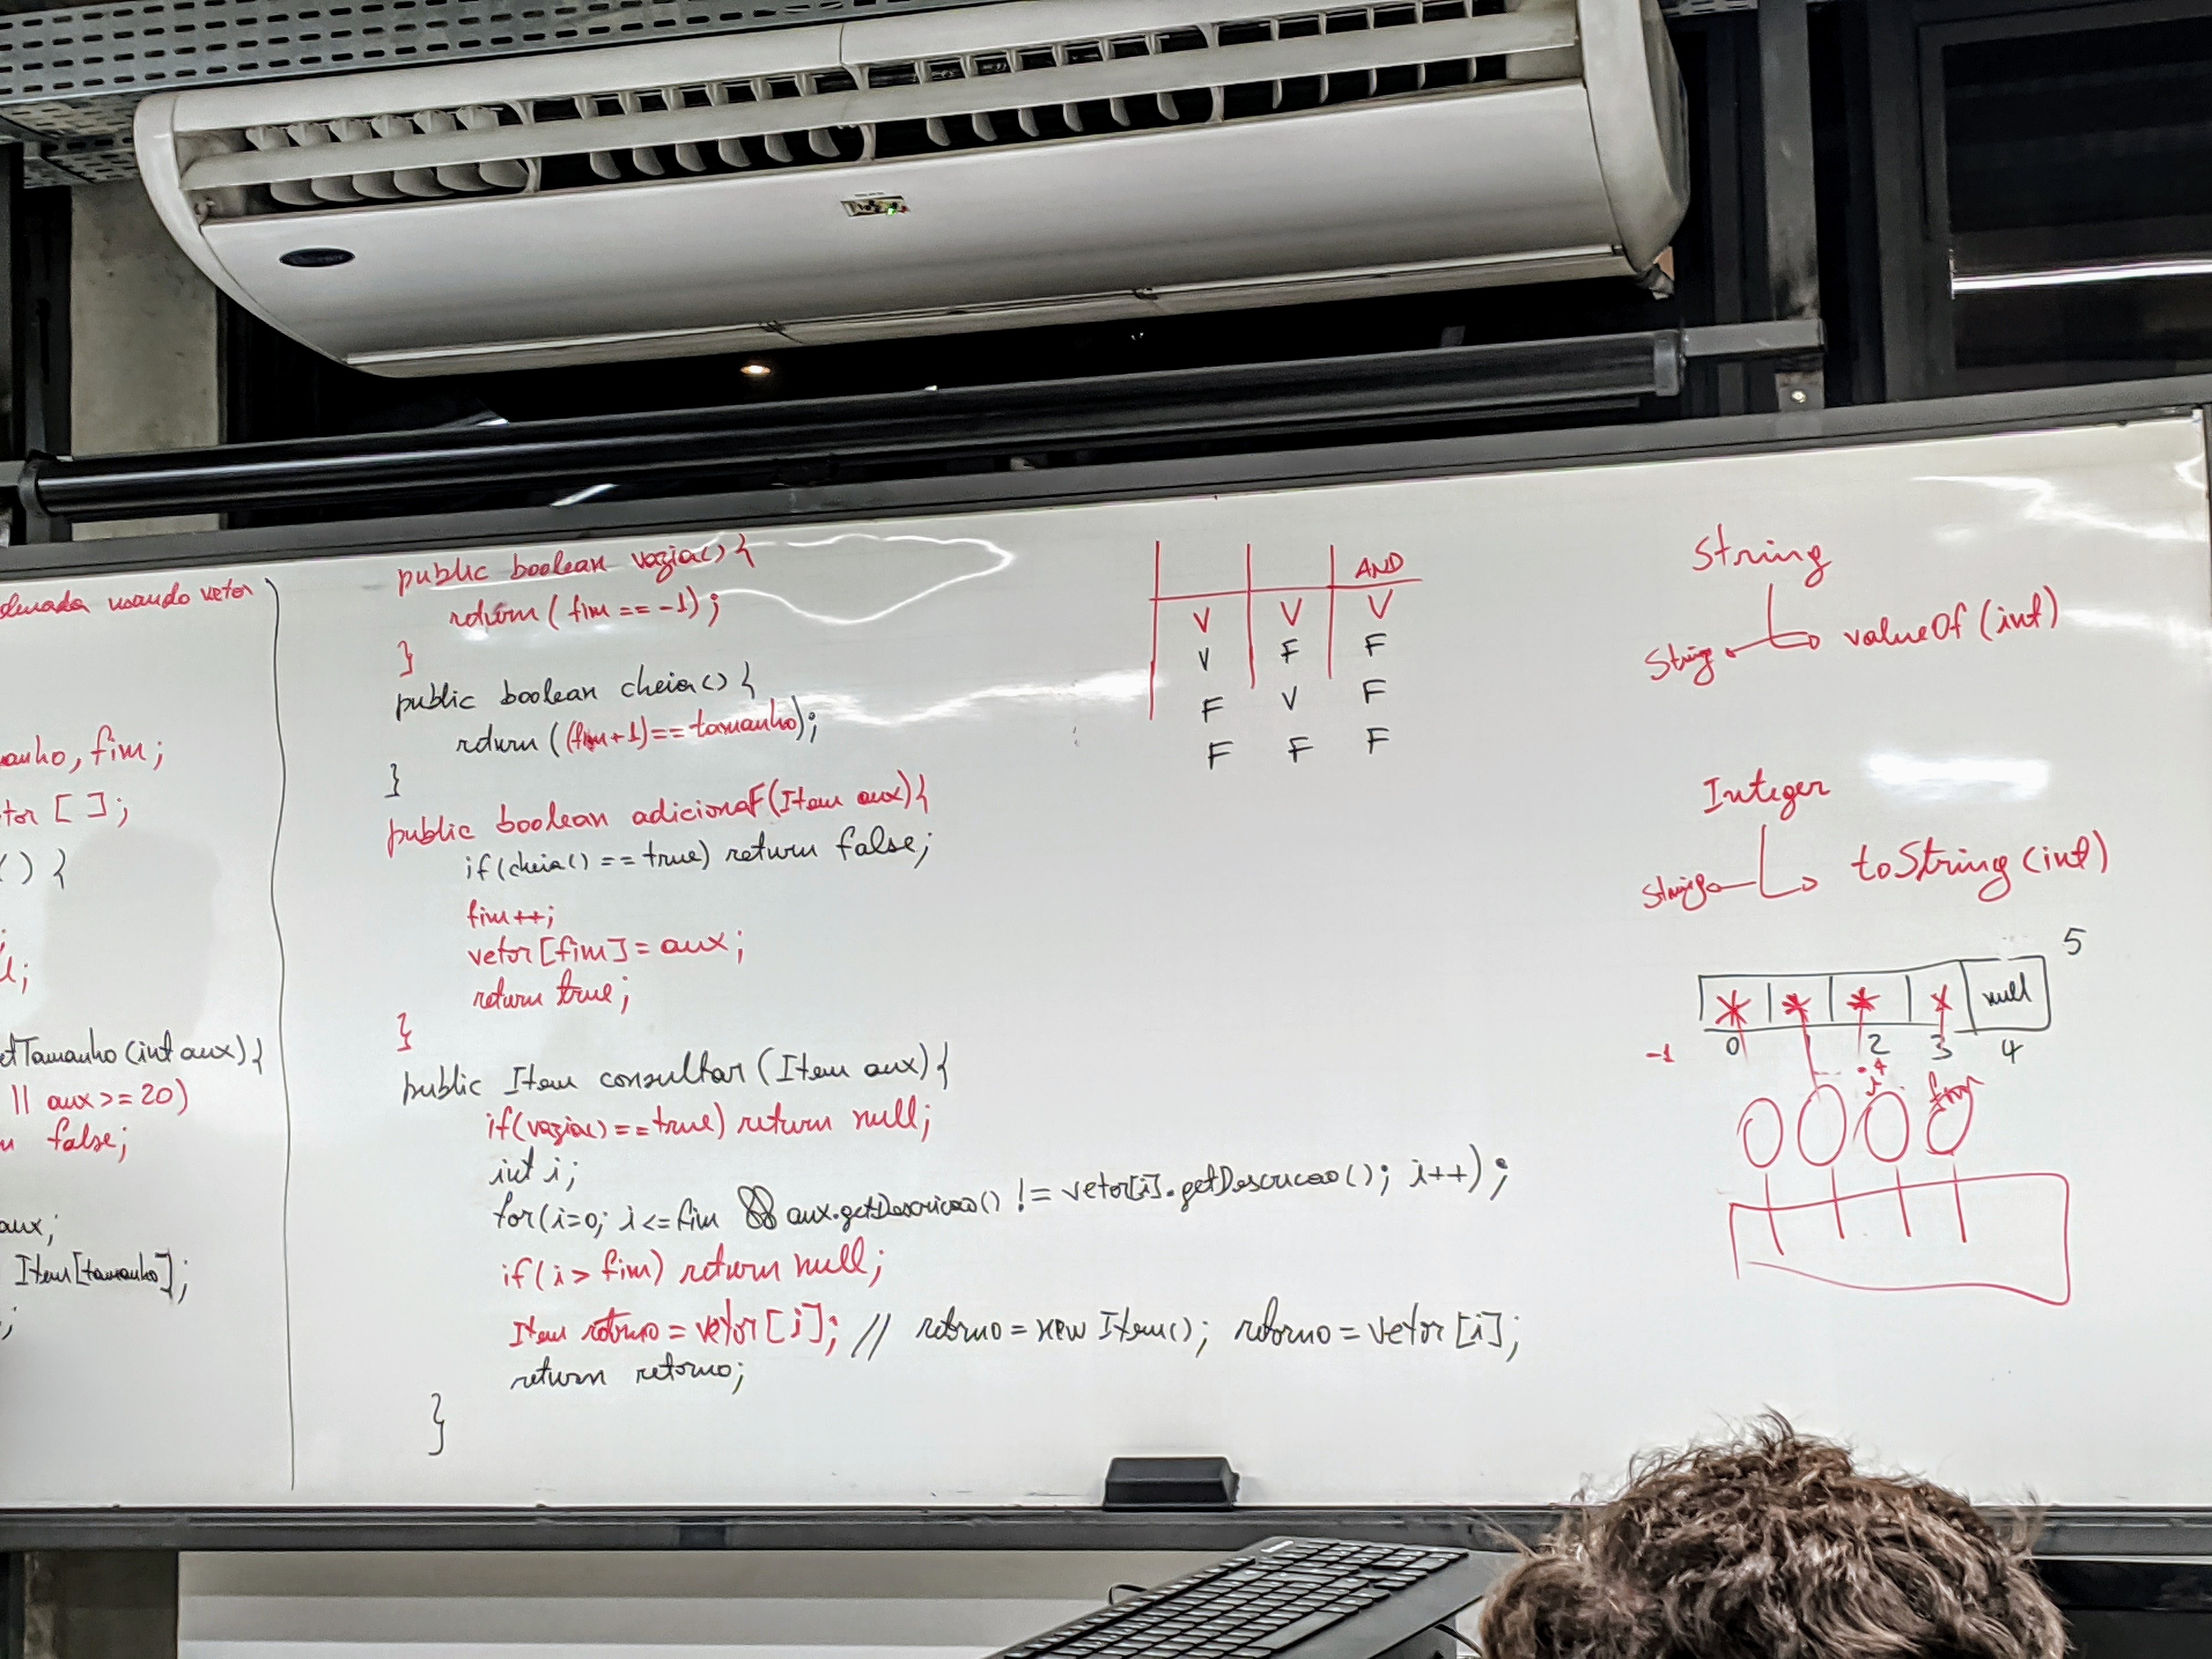 usando vetor
, fim;
[ ];
( ) {
;
;
Tamanho (int aux) {
|| aux >= 20)
false;
aux;
Item[tamanho];
;
public boolean vazia() {
return ( fim == -1 );
}
public boolean cheia() {
return ( (fim+1) == tamanho);
}
public boolean adicionaF(Item aux) {
if(cheia() == true) return false;
fim++;
vetor [fim] = aux;
return true;
}
public Item consultar (Item aux) {
if(vazia() == true) return null;
int i;
for(i=0; i <= fim && aux.getDescricao() != vetor[i].getDescricao(); i++);
if( i > fim) return null;
Item retorno = vetor [i]; // retorno = new Item(); retorno = vetor [i];
return retorno;
}
AND
V V V
V F F
F V F
F F F
String
String valueOf (int)
Integer
String toString (int)
5
null
-1 0 1 2 3 4
i fim